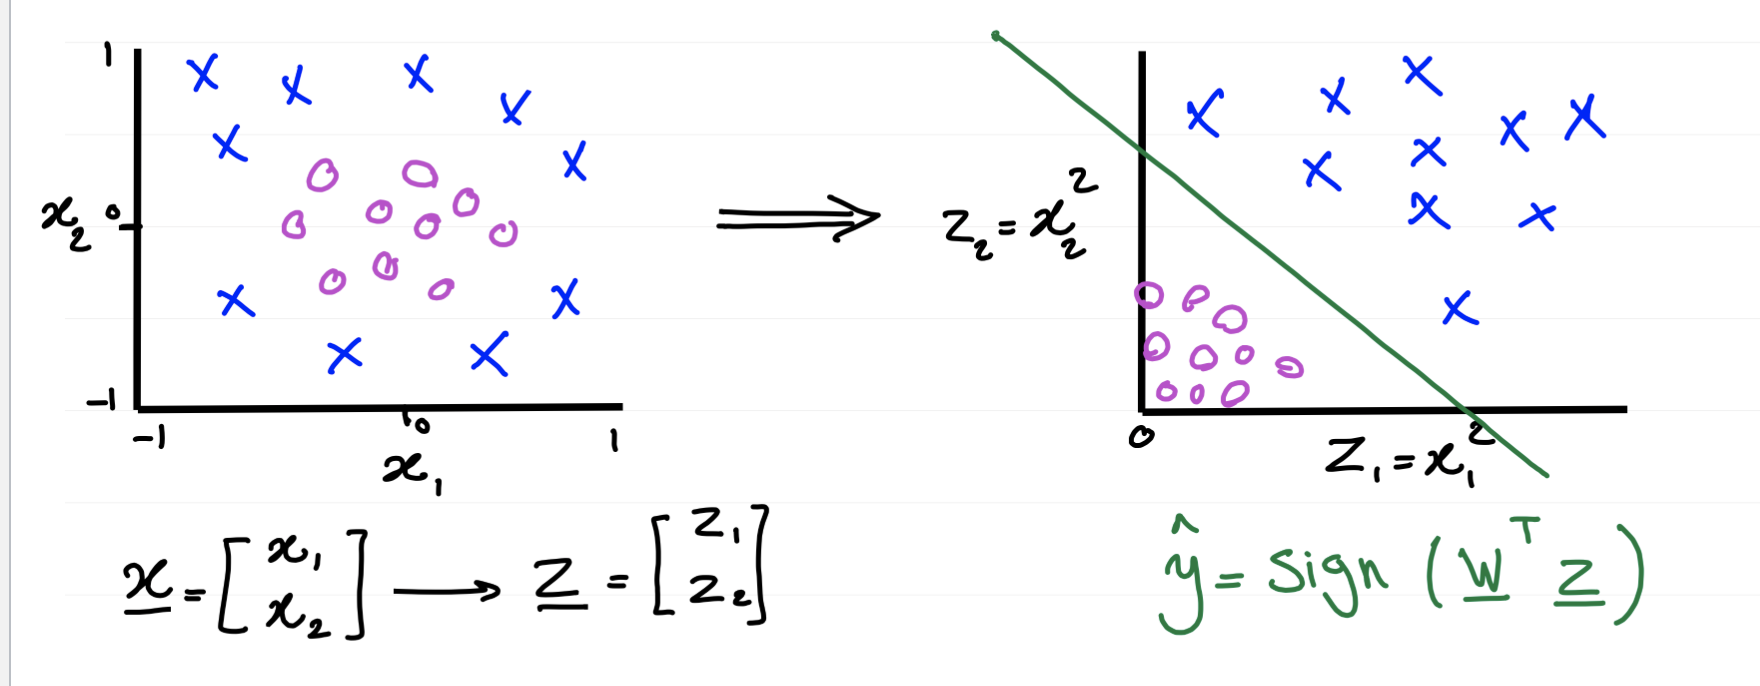 1
x₂ 0
-1
-1 0 1
x₁
z₂ = x₂²
0
z₁ = x₁²
x = [x₁ x₂] → z = [z₁ z₂]
ŷ = sign (wᵀ z)